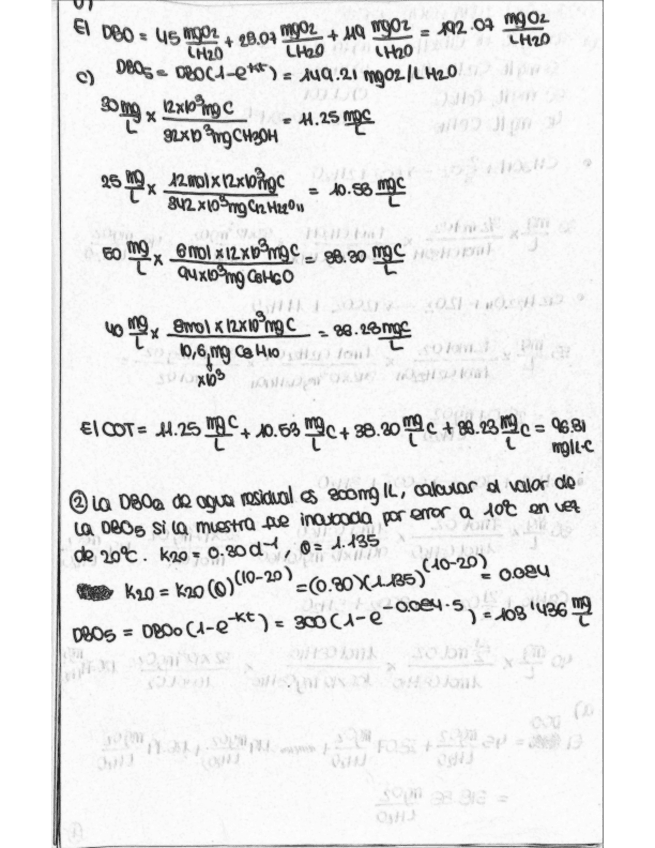 b)
El DBO = 45 mgO2/LH2O + 28.07 mgO2/LH2O + 119 mgO2/LH2O = 192.07 mgO2/LH2O
c) DBO5 = DBO(1-e^-kt) = 149.21 mgO2/LH2O
30 mg/L x 12x10^3 mg C / 32x10^3 mg CH3OH = 11.25 mgC/L
25 mg/L x 12mol x 12x10^3 mgC / 342x10^3 mg C12H22O11 = 10.53 mgC/L
50 mg/L x 6mol x 12x10^3 mg C / 94x10^3 mg C6H6O = 38.30 mgC/L
40 mg/L x 8mol x 12x10^3 mg C / 10,6 mg C8H10 x10^3 = 36.23 mgC/L
El COT = 11.25 mgC/L + 10.53 mg/L C + 38.30 mg/L C + 36.23 mg/L C = 96.31 mg/L-C
② La DBO2 de agua residual es 300mg/L, calcular el valor de
la DBO5 si la muestra fue incubada por error a 10°C en vez
de 20°C. K20 = 0.30 d^-1, θ = 1.135
K20 = K20 (θ)^(10-20) = (0.30)(1.135)^(10-20) = 0.084
DBO5 = DBO0 (1-e^-kt) = 300 (1-e^-0.084·5) = 103'436 mg/L